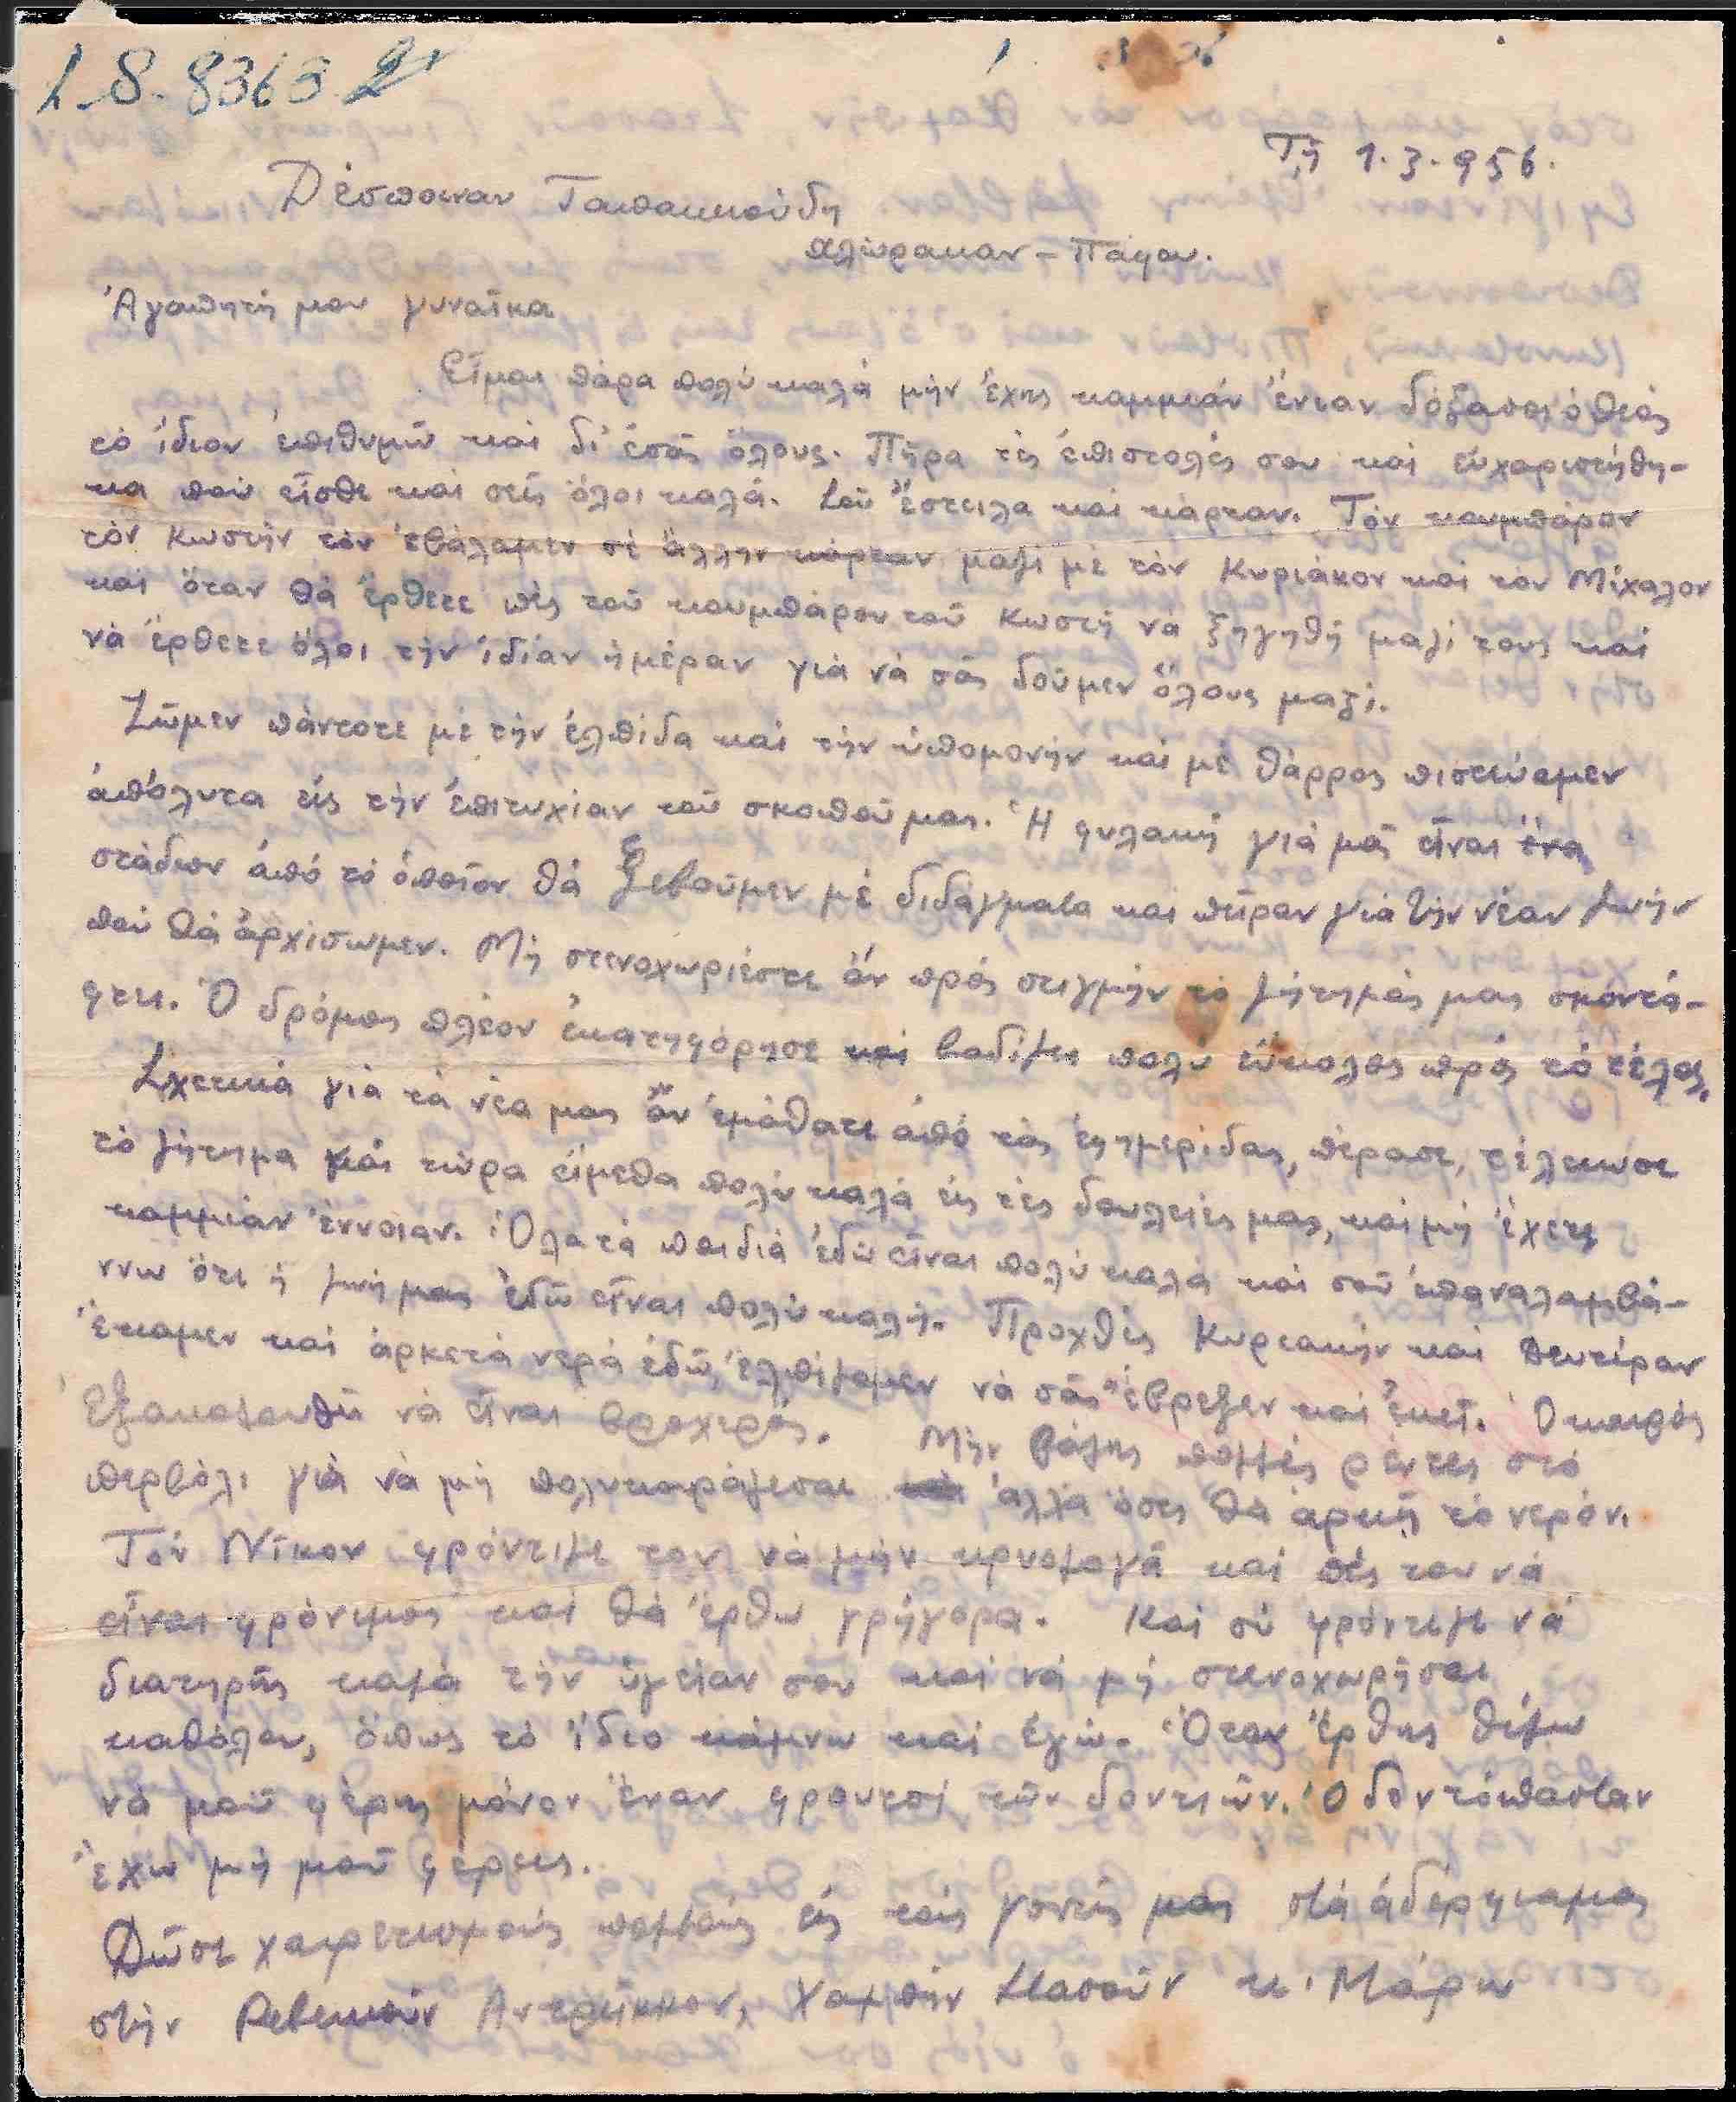 1.S. 8363
Τῇ 1.3.956.
Δέσποιναν Ταπακκούδη
Χλώρακαν - Πάφου.
Ἀγαπητή μου γυναῖκα
Εἶμαι πάρα πολύ καλά μήν ἔχῃς καμμιάν ἔνιαν δόξασοι ὁ θεός
τό ἴδιον ἐπιθυμῶ καί δι' ἐσᾶς ὅλους. Πῆρα τές ἐπιστολές σου καί εὐχαριστήθη-
κα πού εἶσθε καί σεῖς ὅλοι καλά. Σοῦ ἔστειλα καί κάρταν. Τόν κουμπάρον
τόν Κωστήν τόν ἐβάλαμεν σέ ἄλλην κάρταν μαζί μέ τόν Κυριάκον καί τόν Μίχαλον
καί ὅταν θά ἔρθετε πές τοῦ κουμπάρου τοῦ Κωστῆ νά ξηγηθῇ μαζί τους καί
νά ἔρθετε ὅλοι τήν ἰδίαν ἡμέραν γιά νά σᾶς δοῦμεν ὅλους μαζί.
Ζῶμεν πάντοτε μέ τήν ἐλπίδα καί τήν ὑπομονήν καί μέ θάρρος πιστεύομεν
ἀπόλυτα εἰς τήν ἐπιτυχίαν τοῦ σκοποῦ μας. Ἡ φυλακή γιά μᾶς εἶναι ἕνα
στάδιον ἀπό τό ὁποῖον θά ξεβοῦμεν μέ διδάγματα καί πεῖραν γιά τήν νέαν ζωήν
πού θά ἀρχίσωμεν. Μή στενοχωριέστε ἄν πρός στιγμήν τό ζήτημάς μας σκοντά-
φτει. Ὁ δρόμος πλέον ἐκατηφόρησε καί βαδίζει πολύ εὔκολος πρός τό τέλος.
Σχετικά γιά τά νέα μας ἄν ἐμάθατε ἀπό τάς ἐφημερίδας, πέρασε, τέλειωσε
τό ζήτημα καί τώρα εἴμεθα πολύ καλά εἰς τές δουλειές μας, καί μή ἔχετε
καμμιάν ἔννοιαν. Ὅλα τά παιδιά ἐδῶ εἶναι πολύ καλά καί σοῦ ἐπαναλαμβά-
ννω ὅτι ἡ ζωή μας ἐδῶ εἶναι πολύ καλή. Προχθές Κυριακήν καί Δευτέραν
ἔκαμεν καί ἀρκετά νερά ἐδῶ, ἐλπίζομεν νά σᾶς ἔβρεξεν καί ἐκεῖ. Ὁ καιρός
ἐξακολουθεῖ νά εἶναι βροχερός. Μήν βάλῃς πολλές ρέντες στό
περβόλι γιά νά μή πολυκουράζεσαι ἀλλά ὅσες θά ἀρκῇ τό νερόν.
Τόν Νῖκον φρόντιζε τον νά μήν κρυολογᾷ καί πές του νά
εἶναι φρόνιμος καί θά ἔρθω γρήγορα. Καί σύ φρόντιζε νά
διατηρῇς καλά τήν ὑγείαν σου καί νά μή στενοχωρῆσαι
καθόλου, ὅπως τό ἴδιο κάμνω καί ἐγώ. Ὅταν ἔρθῃς θέλω
νά μοῦ φέρῃς μόνον ἕναν φρουτσί τῶν δοντιῶν. Ὁδοντόπασταν
ἔχω μή μοῦ φέρεις.
Δῶσε χαιρετισμούς πολλούς εἰς τούς γονεῖς μας στά ἀδέρφια μας
στήν Ρεβεκκούν Ἀντρίκκον, Χαμπήν Στασοῦν κ. Μάρω